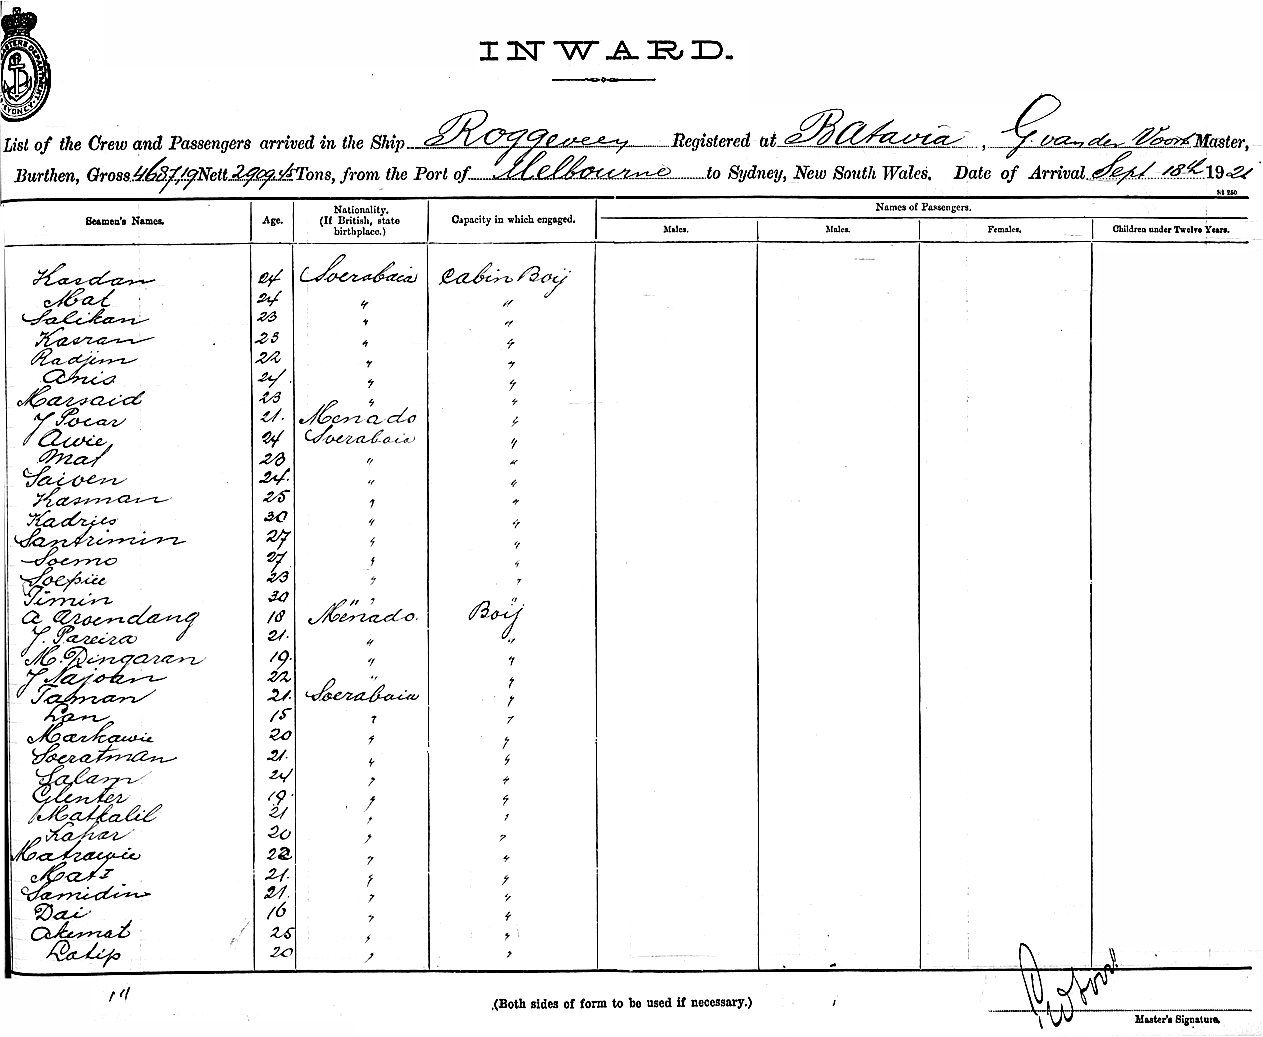 INWARD.
List of the Crew and Passengers arrived in the Ship Roggeveen Registered at Batavia, G. van der Voort Master,
Burthen, Gross 4687,19 Nett 2909.45 Tons, from the Port of Melbourne to Sydney, New South Wales. Date of Arrival Sept 18th 1921
Seamen's Names. Age. Nationality. (If British, state birthplace.) Capacity in which engaged. Names of Passengers.
Males. Males. Females. Children under Twelve Years.
Kardan 24 Soerabaia Cabin Boij
Mat 24 " "
Salikan 23 " "
Kasran 23 " "
Radjim 22 " "
Anis 24 " "
Marsaid 23 " "
J Pocar 21. Menado "
Awie 24 Soerabaia "
Mat 23 " "
Saiven 24. " "
Kasman 25 " "
Kadries 30 " "
Santrimin 27 " "
Soemo 27 " "
Soepiie 23 " "
Timin 30 " "
A Aroendang 18 Menado. Boij
J. Pareira 21. " "
M. Dingaran 19. " "
J Najoan 22 " "
Taman 21. Soerabaia "
Lan 15 " "
Markawie 20 " "
Soeratman 21. " "
Salam 24 " "
Glenter 19. " "
Matkalil 21 " "
Kahar 20 " "
Matrawie 22 " "
Mat I 21. " "
Samidin 21. " "
Dai 16 " "
Akemat 25 " "
Latip 20 " "
(Both sides of form to be used if necessary.)
Master's Signature.